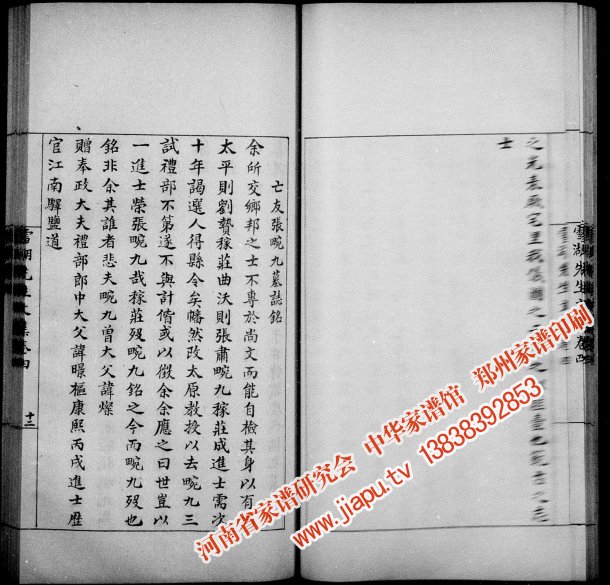 之光表厥宅里我儀圖之
士
亡友張畹九墓誌銘
余所交鄉邦之士不專於尚文而能自檢其身以有
太平則劉贄稼莊曲沃則張肅畹九稼莊成進士需次
十年謁選人得縣令矣幡然改太原教授以去畹九三
試禮部不第遂不與計偕或以徵余余應之曰世豈以
一進士榮張畹九哉稼莊歿畹九銘之今而畹九歿也
銘非余其誰者悲夫畹九曾大父諱燦
贈奉政大夫禮部郎中大父諱㬢樞康熙丙戌進士歷
官江南驛鹽道
十二
河南省家谱研究会 中华家谱馆 郑州家谱印刷
www.jiapu.tv 13838392853